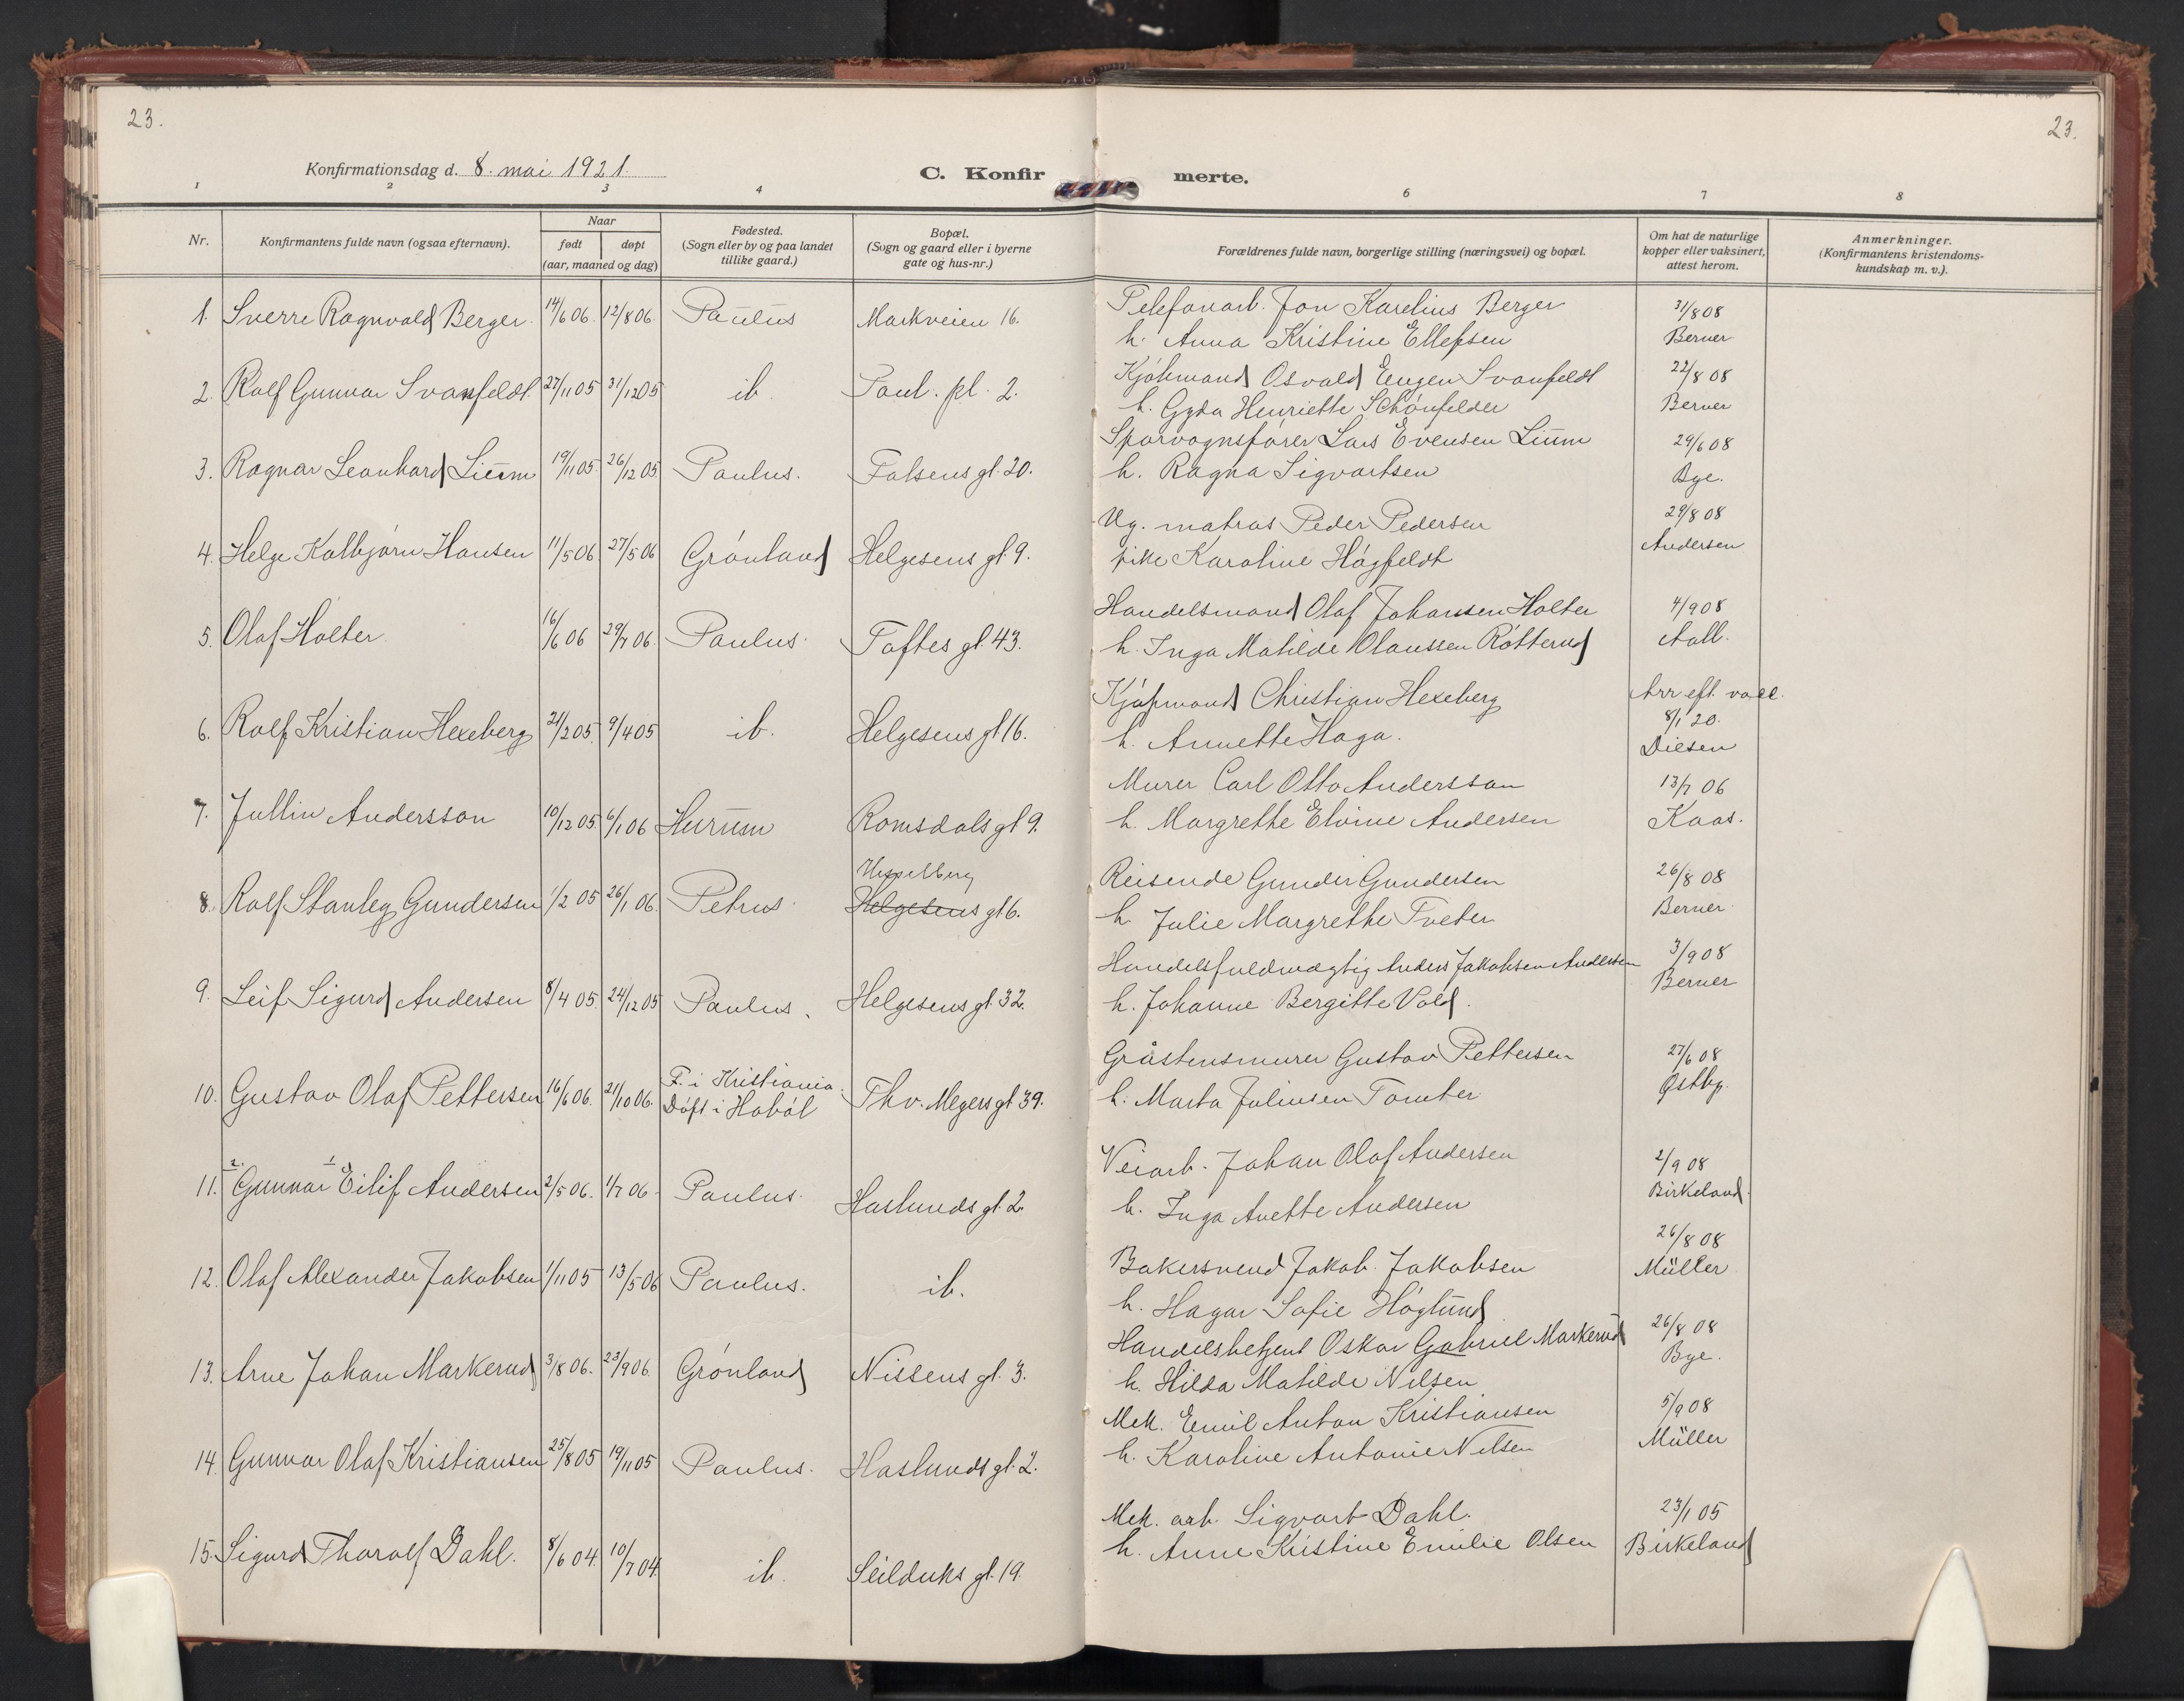 23.
23.
Konfirmationsdag d. 8. mai 1921.
C. Konfirmerte.
1 2 3 4 6 7 8
Nr.
Konfirmantens fulde navn (ogsaa efternavn).
Naar
født døpt
(aar, maaned og dag)
Fødested.
(Sogn eller by og paa landet
tillike gaard.)
Bopæl.
(Sogn og gaard eller i byerne
gate og hus-nr.)
Forældrenes fulde navn, borgerlige stilling (næringsvei) og bopæl.
Om hat de naturlige
kopper eller vaksinert,
attest herom.
Anmerkninger.
(Konfirmantens kristendoms-
kundskap m. v.).
1. Sverre Ragnvald Berger. 14/6 06. 12/8 06. Paulus Markveien 16.
Telefonarb. Jon Karelius Berger
h. Anna Kristine Ellefsen
31/8 08
Berner
2. Rolf Gunnar Svanfeldt 27/11 05 31/12 05 ib. Paul. pl. 2.
Kjøbmand Osvald Eugen Svanfeldt
h. Gyda Henriette Schönfelder
22/8 08
Berner
3. Ragnar Leonhard Lium 19/11 05. 26/12 05 Paulus. Falsens gt. 20.
Sporvognsfører Lars Evensen Lium
h. Ragna Sigvartsen
29/6 08
Bye.
4. Helge Kolbjørn Hansen 11/5 06. 27/5 06 Grønland Helgesens gt. 9.
Ug. matros Peder Pedersen
pike Karoline Høgfeldt
29/8 08
Andersen
5. Olaf Holter 16/6 06 29/7 06. Paulus. Toftes gt. 43.
Handelsmand Olaf Johansen Holter
h. Inga Matilde Olaussen Røtterud
4/9 08
Aall.
6. Rolf Kristian Hexeberg 21/2 05. 9/4 05 ib. Helgesens gt 16.
Kjøpmand Christian Hexeberg
h. Annette Haga.
Arr eft. vacc.
8/1 20.
Diesen
7. Jullin Andersson 10/12 05. 6/1 06 Hurum Romsdals gt 9.
Murer Carl Otto Andersson
h. Margrethe Elvine Andersen
13/7 06
Kaas.
8. Rolf Stanley Gundersen 1/2 05 26/1 06. Petrus Helgesens gt 6.
Reisende Gunder Gundersen
h. Julie Margrethe Tveter
26/8 08
Berner
9. Leif Sigurd Andersen 8/4 05. 24/12 05 Paulus. Helgesens gt. 32.
Handelsfuldmægtig Anders Jakobsen Andersen
h. Johanne Bergitte Vold.
3/9 08
Berner
10. Gustav Olaf Pettersen 16/6 06. 21/10 06. F. i Kristiania.
Døpt i Hobøl Thv. Meyers gt 39.
Gråstensmurer Gustav Pettersen
h. Marta Julinsen Tomter
27/6 08
Østby.
2. 1.
11. Gunnar Eilif Andersen 2/5 06. 1/7 06 Paulus. Haslunds gt. 2.
Veiarb. Johan Olaf Andersen
h. Inga Anette Andersen
2/9 08
Birkeland.
12. Olaf Alexander Jakobsen 1/11 05 13/5 06 Paulus. ib.
Bakersvend Jakob Jakobsen
h. Hagar Sofie Høglund
26/8 08
Müller
13. Arne Johan Markerud 3/8 06. 23/9 06. Grønland Nissens gt. 3.
Handelsbetjent Oskar Gabriel Markerud
h. Hilda Matilde Nilsen
26/8 08
Bye.
14. Gunnar Olaf Kristiansen 25/8 05 19/11 05 Paulus. Haslunds gt. 2.
Mek. Emil Anton Kristiansen
h. Karoline Antonie Nilsen
5/9 08
Müller
15. Sigurd Thoralf Dahl. 8/6 04. 10/7 04. ib. Seilduks gt. 19.
Mek. arb. Sigvart Dahl.
h. Anne Kristine Emilie Olsen
23/1 05
Birkeland